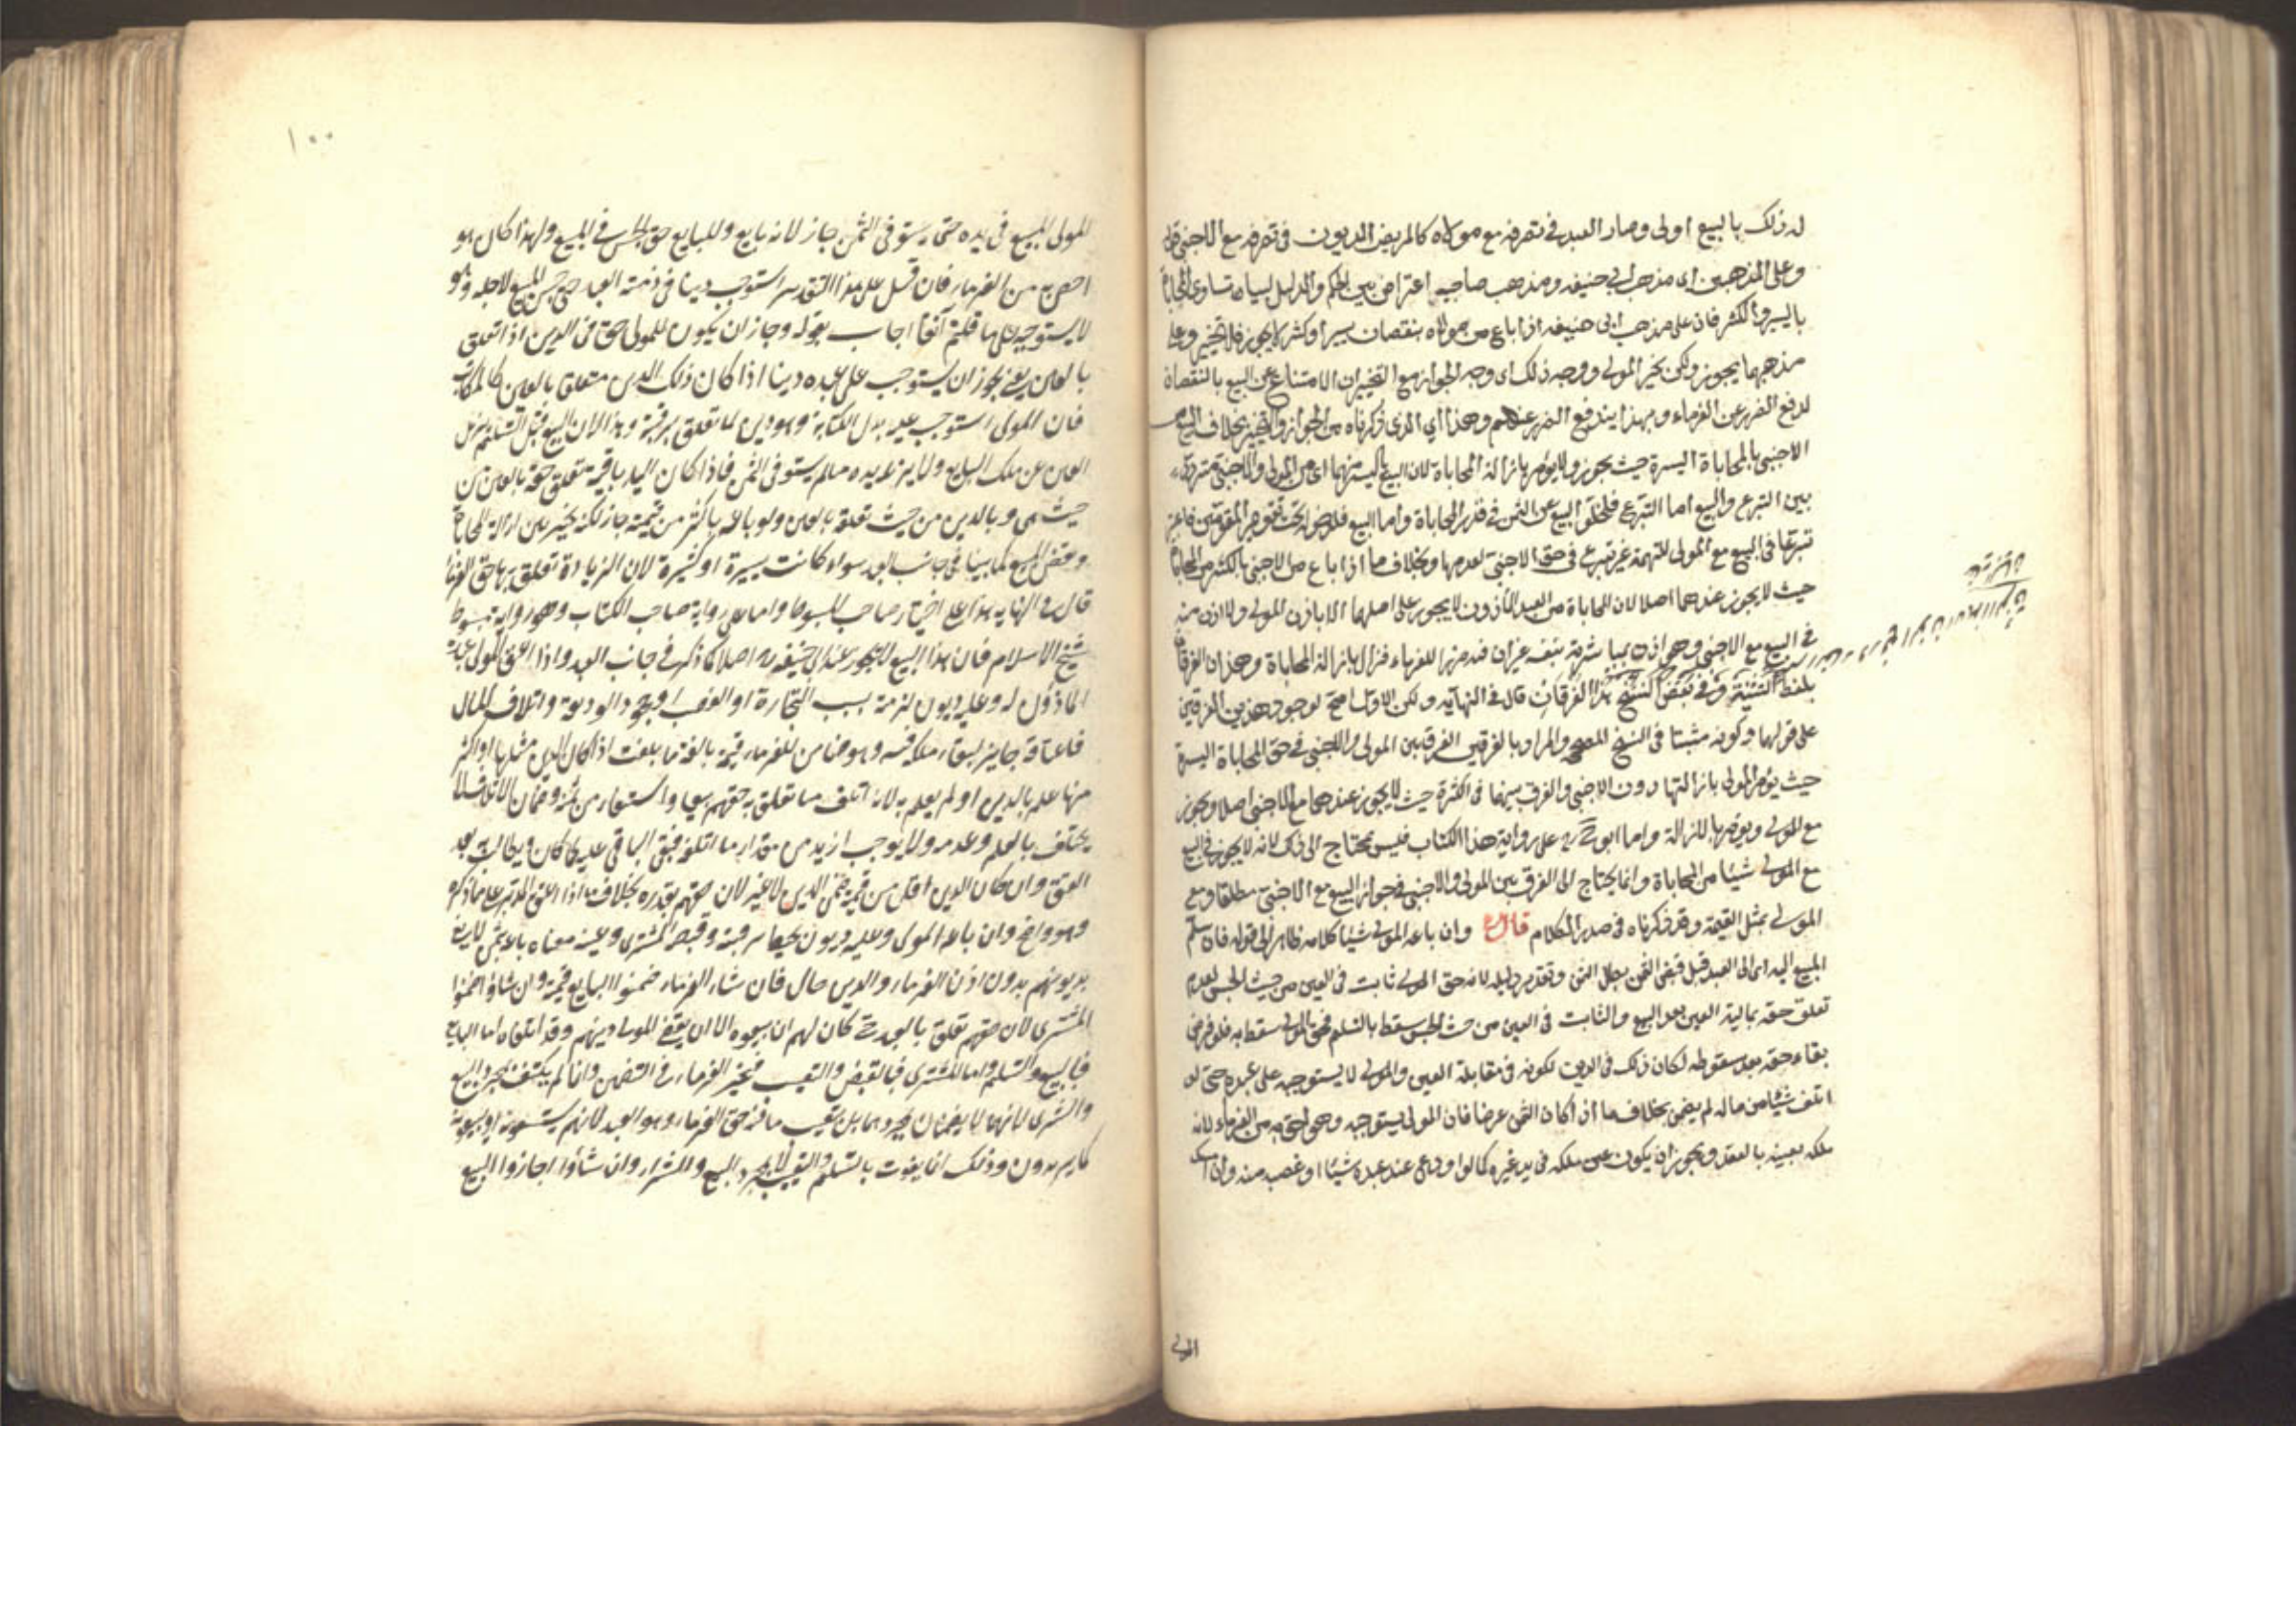 له ذلك بالبيع اولى وصار العبد في تصرفه مع مولاه كالمريض المديون في تصرفه مع الاجنبي قوله
وعلى المذهبين اى مذهب ابى حنيفه ومذهب صاحبيه اعتراض بين الحكم والدليل لبيان تساوى المحاباة
باليسير والكثير فان على مذهب ابى حنيفه اذا باع من مولاه بنقصان يسيرا وكثير لا يجوز فلا تخيير وعلى
مذهبهما يجوز ولكن يخير المولى ووجه ذلك اى وجه الجواز مع التخيير ان الامتناع عن البيع بالنقصان
لدفع الضرر عن الغرماء وبهذا يندفع الضرر عنهم وهذا اى الذى ذكرناه من الجواز والتخيير بخلاف البيع من
الاجنبى بالمحاباة اليسيرة حيث يجوز ولا يؤمر بازالة المحاباة لان البيع باليسير منهما اى من المولى والاجنبى متردد
بين التبرع والبيع اما التبرع فلخلو البيع عن الثمن في قدر المحاباة واما البيع فلدخوله تحت تقويم المقومين فاعتبر
تبرعا في البيع مع المولى للتهمة غير تبرع في حق الاجنبى لعدمها وبخلاف ما اذا باع من الاجنبى بالكثير من المحاباة
حيث لا يجوز عندهما اصلا لان المحاباة من العبد المأذون لا يجوز على اصلهما الا باذن المولى ولا اذن منه
في البيع مع الاجنبى وهو اذن بمباشرته بنفسه غير ان فيه ضررا للغرماء فيزال بازالة المحاباة وهذان الفرقان
بلفظ التثنية وفي بعض النسخ هذا الفرقان قال في النهاية ولكن الاول اصح لوجود هذين الفرقين
على قولهما وكونه مثبتا في النسخ المصححه والمراد بالفرقين الفرق بين المولى والاجنبى في حق المحاباة اليسيرة
حيث يؤمر المولى بازالتها دون الاجنبى والفرق بينهما في الكثيرة حيث لا يجوز عندهما مع الاجنبى اصلا ويجوز
مع المولى ويؤمر بالازالة واما ابو ح رح على رواية هذا الكتاب فليس بمحتاج الى ذلك لانه لا يجوز في البيع
مع المولى شيئا من المحاباة وانما يحتاج الى الفرق بين المولى والاجنبى في جواز البيع مع الاجنبى مطلقا ومع
المولى بمثل القيمة وقد ذكرناه في صدر الكلام قال وان باعه المولى شيئا كلامه ظاهر الى قوله فان سلم
المبيع اليه اى الى العبد قبل قبض الثمن بطل الثمن وتقدير دليله لان حق المولى ثابت في العين من حيث الحبس لعدم
تعلق حقه بمالية العين بعد البيع والثابت في العين من حيث الحبس سقط بالتسليم فحق المولى سقط به فلو فرض
بقاء حقه بعد سقوطه لكان ذلك في الدين لكونه في مقابلة العين والمولى لا يستوجبه على عبده حتى لو
اتلف شيئا من ماله لم يضمن بخلاف ما اذا كان الثمن عرضا فان المولى يستوجبه وهو احق به من الغرماء لانه
ملكه بعينه بالعقد ويجوز ان يكون عين ملكه في يد غيره كما لو اودع عند عبده شيئا او غصب منه وان امسك
المولى
١٠٠
المولى المبيع في يده حتى يستوفى الثمن جاز لانه بايع وللبايع حق الحبس في المبيع ولهذا كان هو
احق به من الغرماء فان قيل على هذا التقدير استوجب دينا في ذمة العبد حتى حبس المبيع لاجله وهو
لا يستوجبه على ما قلتم آنفا اجاب بقوله وجاز ان يكون للمولى حق في الدين اذا تعلق
بالعين يعنى يجوز ان يستوجب على عبده دينا اذا كان ذلك الدين متعلقا بالعين كالمكاتب
فان المولى استوجب عليه بدل الكتابة وهو دين لما تعلق برقبته وهذا لان البيع قبل التسليم يزيل
العين عن ملك البايع ولا يزيل يده ما لم يستوف الثمن فاذا كان اليد باقية تعلق حقه بالعين من
حيث هى وبالدين من حيث تعلقه بالعين ولو باعه باكثر من قيمته جاز لكنه يخير بين ازالة المحاباة
ونقض البيع كما بينا في جانب العبد سواء كانت يسيرة او كثيرة لان الزيادة تعلق بها حق الغرماء
قال في النهايه هذا على اختيار صاحب المبسوط واما على رواية صاحب الكتاب وهو رواية مبسوط
شيخ الاسلام فان هذا البيع لا يجوز عند ابى حنيفه رح اصلا كما ذكر في جانب العبد واذا اعتق المولى عبده
الماذون له وعليه ديون لزمته بسبب التجارة او الغصب او جحود الوديعة واتلاف المال
فاعتاقه جايز لبقاء ملكه فيه وهو ضامن للغرماء قيمته بالغة ما بلغت اذا كان الدين مثلها او اكثر
منها علم بالدين او لم يعلم به لانه اتلف ما تعلق به حقهم بيعا واستيفاء من ثمنه وضمان الاتلاف لا
يختلف بالعلم وعدمه ولا يوجب ازيد من مقدار ما اتلفه فبقى الباقى عليه كما كان ويطالب به بعد
العتق وان كان الدين اقل من قيمته ضمن الدين لا غير لان حقهم بقدره بخلاف ما اذا اعتق المدبر على ما ذكره
وهو واضح وان باعه المولى وعليه ديون تحيط برقبته وقبضه المشترى وغيبه معناه باعه بثمن لا يفى
بديونهم بدون اذن الغرماء والدين حال فان شاء الغرماء ضمنوا البايع قيمته وان شاؤا ضمنوا
المشترى لان حقهم تعلق بالعبد حتى كان لهم ان يبيعوه الا ان يقضى المولى دينهم وقد اتلفاه اما البايع
فبالبيع والتسليم واما المشترى فبالقبض والتغييب فيخير الغرماء في التضمين وانما لم يكتف بمجرد البيع
والشرى لانهما لا يضمنان بمجردهما بل بتغييب ما فيه حق الغرماء وهو العبد لانهم يستسعونه او يبيعونه
كما يريدون وذلك انما يفوت بالتسليم والتغييب لا بمجرد البيع والشراء وان شاؤا اجازوا البيع